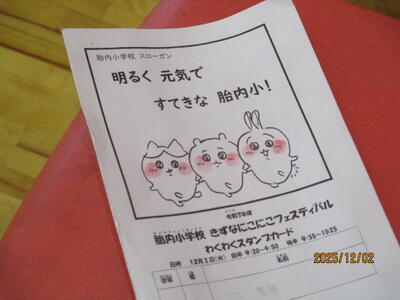 胎内小学校 スローガン
明るく 元気で
すてきな 胎内小!
令和7年度
胎内小学校 きずなにこにこフェスティバル
わくわくスタンプカード
日時 12月2日(火) 前半 9:20~9:50 後半 9:55~10:25
学年
組
名前
2025/12/02